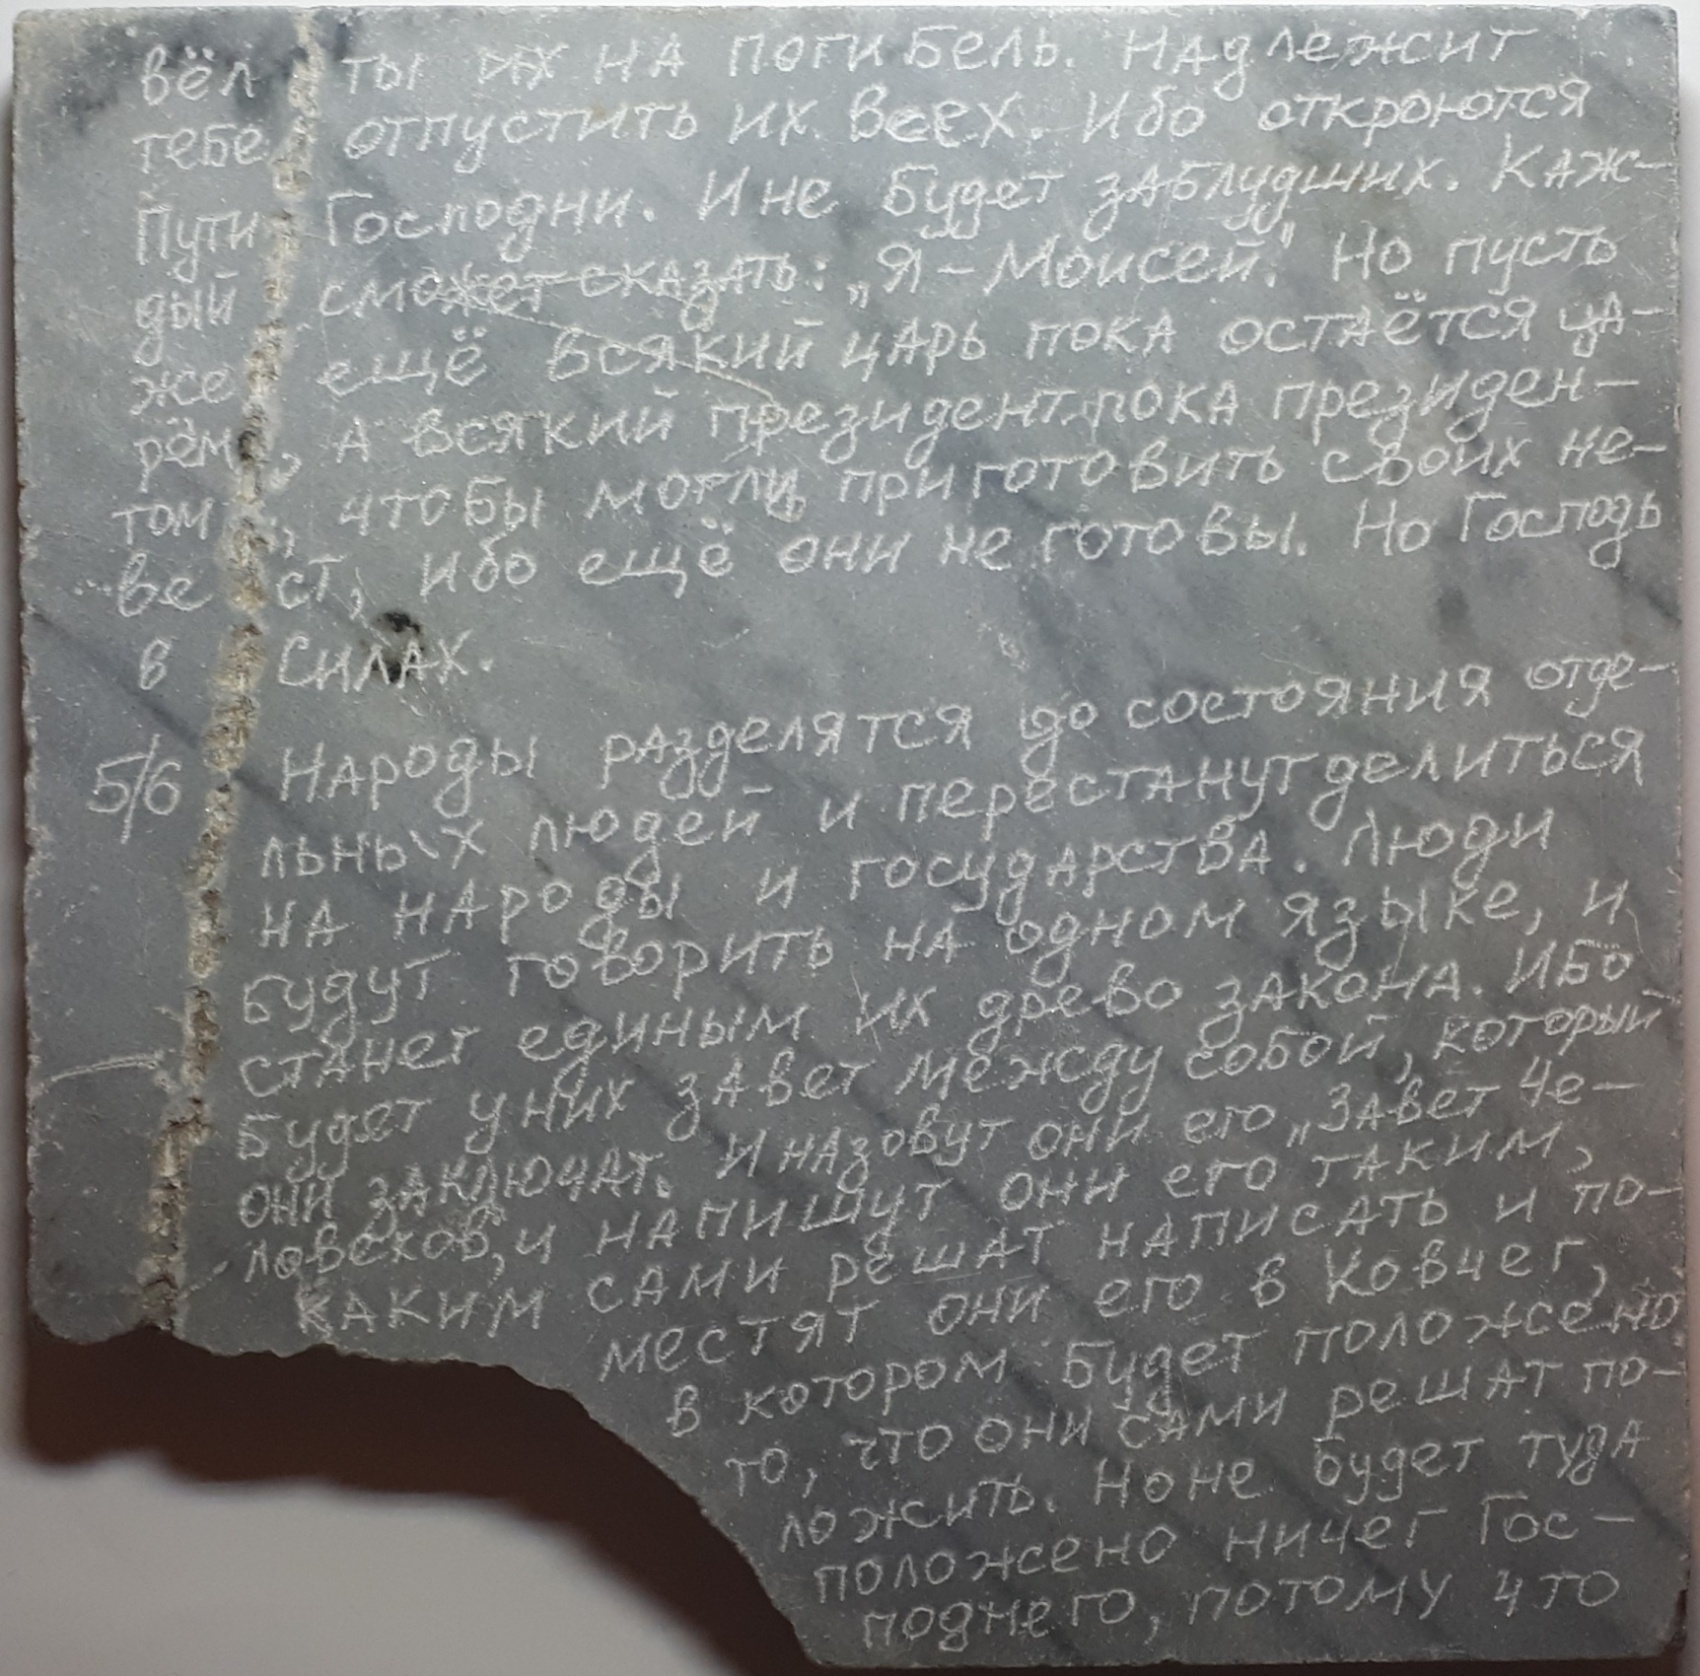 вёл ты их на погибель. Надлежит
тебе отпустить их всех. Ибо откроются
Пути Господни. И не будет заблудших. Каж-
дый сможет сказать: „Я – Моисей." Но пусть
же ещё всякий царь пока остаётся ца-
рём, а всякий президент пока президен-
том, чтобы могли приготовить своих не-
вест, ибо ещё они не готовы. Но Господь
в силах.
5/6 Народы разделятся до состояния отде-
льных людей и перестанут делиться
на народы и государства. Люди
будут говорить на одном языке, и
станет единым их древо закона. Ибо
будет у них завет между собой, который
они заключат. И назовут они его „Завет Че-
ловеков, и напишут они его таким,
каким сами решат написать и по-
местят они его в Ковчег,
в котором будет положено
то, что они сами решат по-
ложить. Но не будет туда
положено ничег Гос-
поднего, потому что